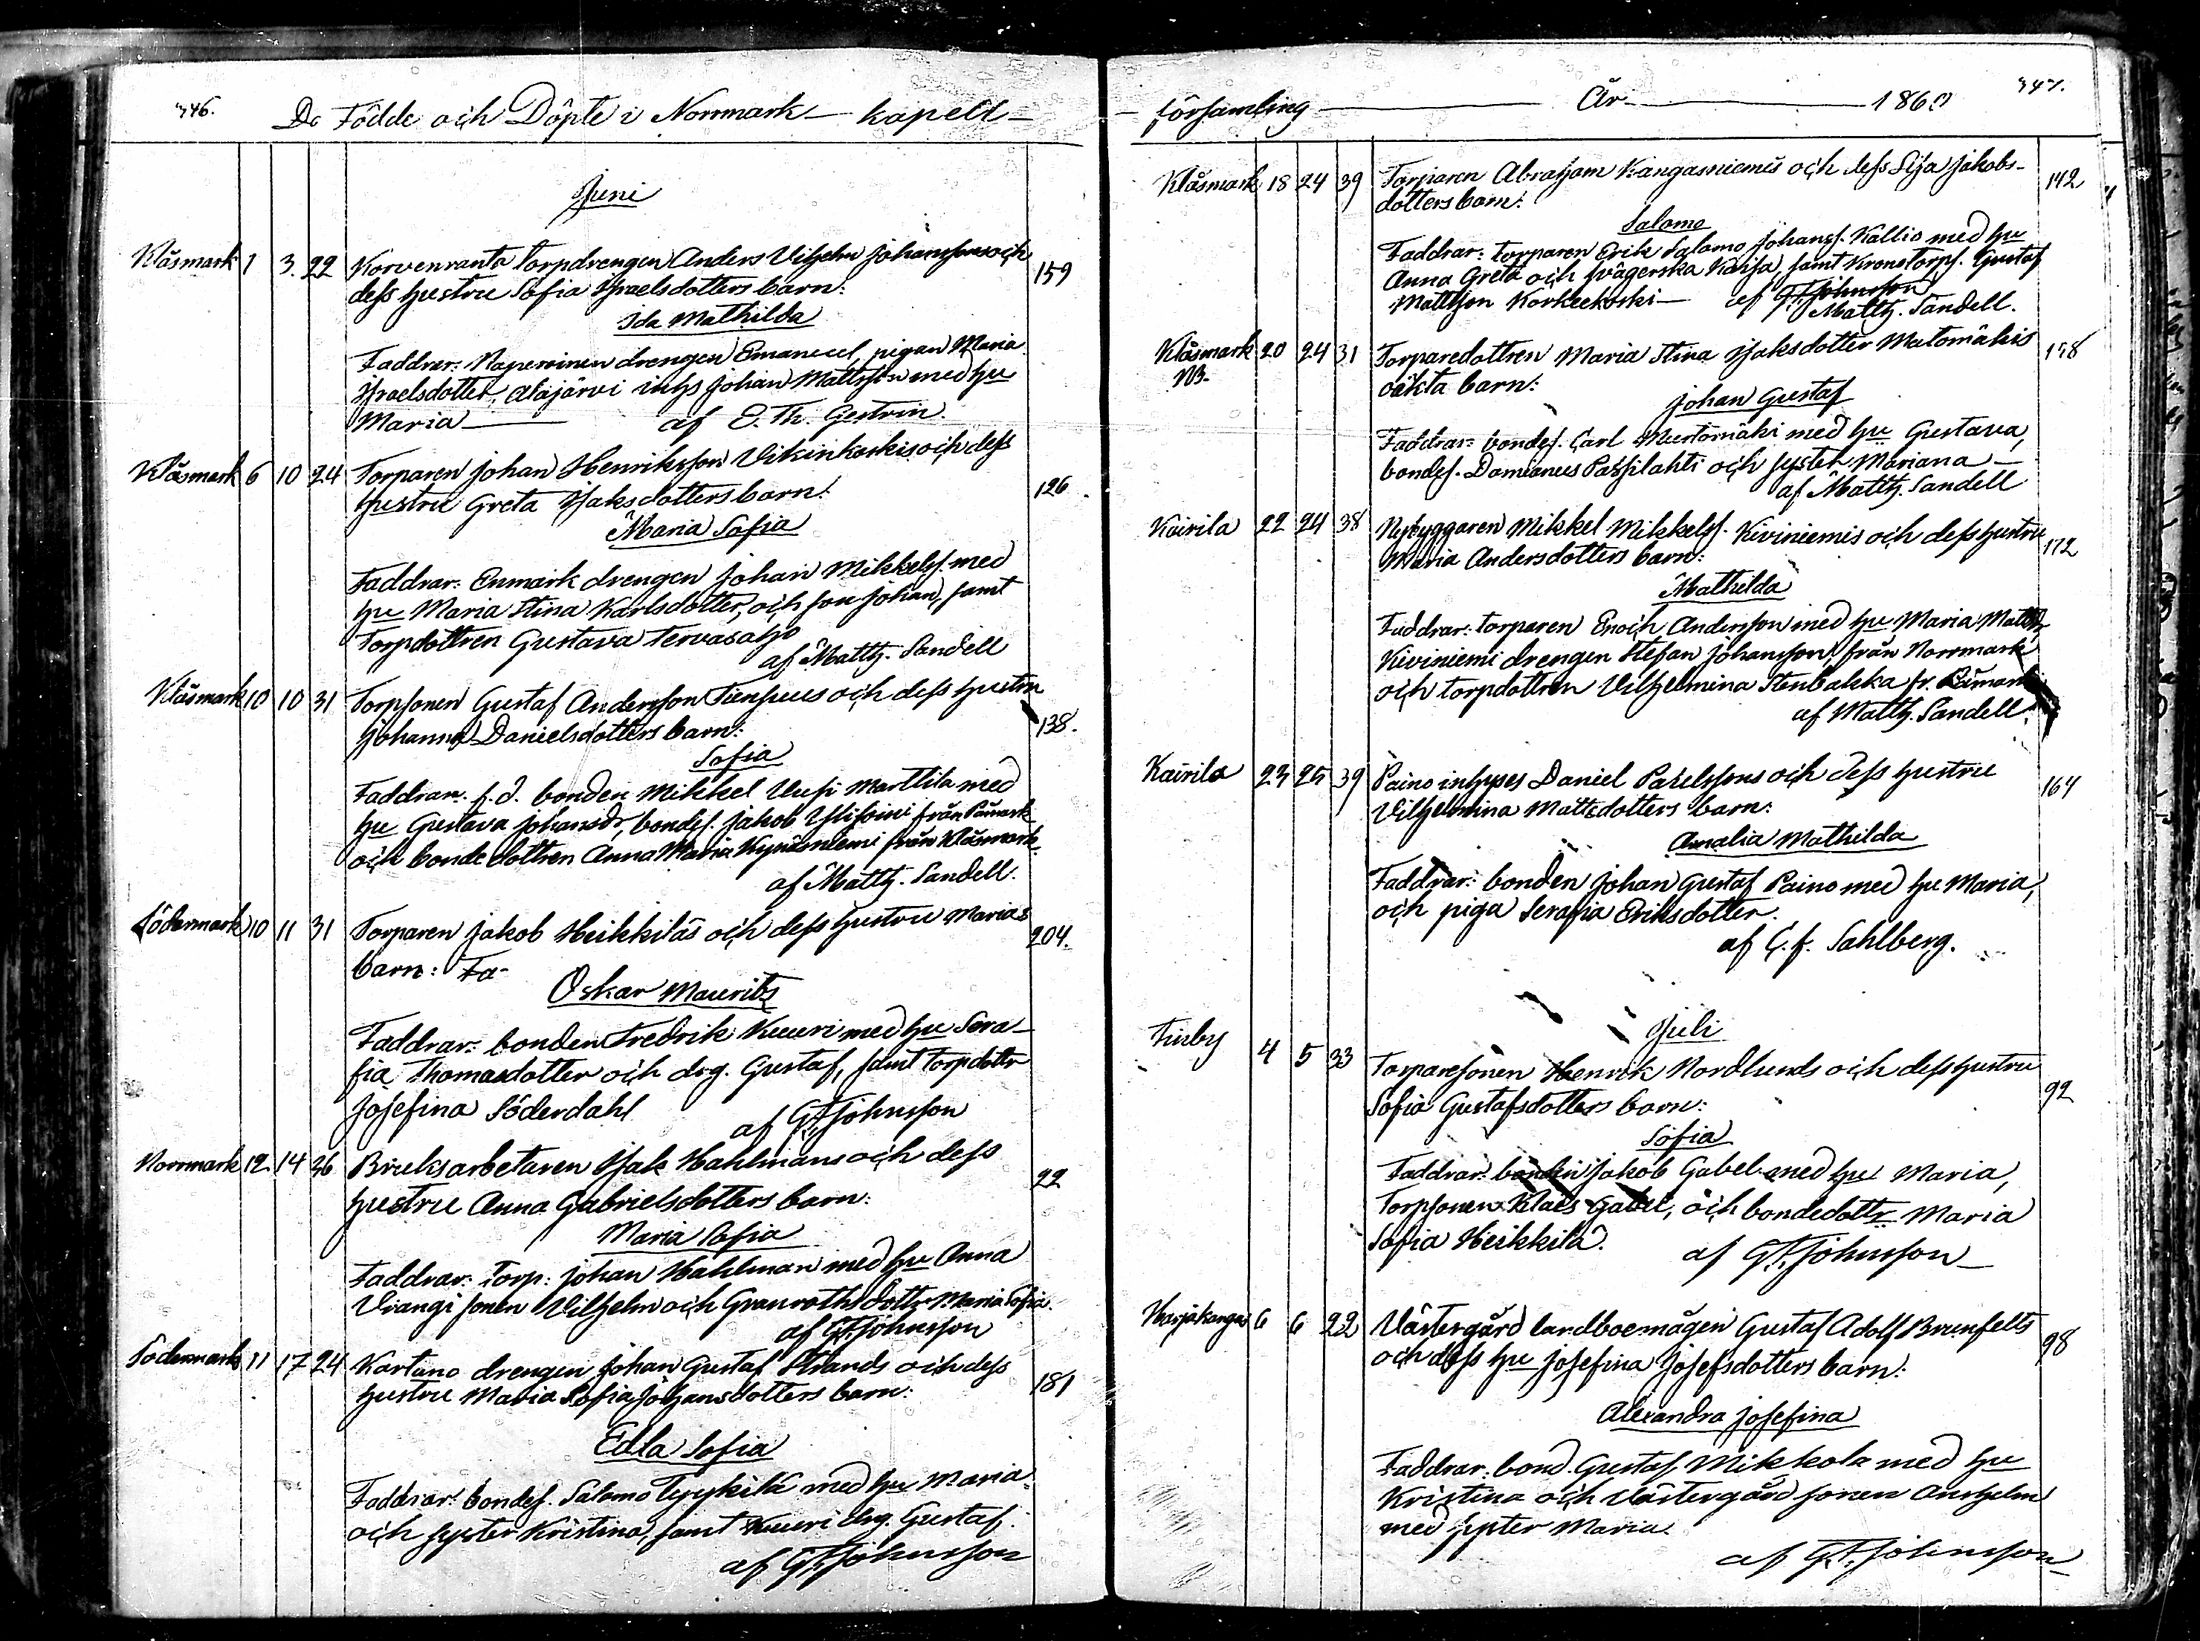 346.
De Födde och Döpte i Norrmark - kapell -
Juni
Klåsmark 1 3 22 Korvenranta torpdrengen Anders Vilhelm Johanssons och
dess hustru Sofia Israelsdotters barn: 159
Ida Mathilda
Faddrar: Raperoinen drengen Emanuel, pigan Maria
Israelsdotter, Alajärvi inhs Johan Mattsson med hu
Maria — af E. Th. Gestrin.
Klåsmark 6 10 24 Torparen Johan Henriksson Vikinkoskis och dess
hustru Greta Isaksdotters barn: 126
Maria Sofia
Faddrar: Enmark drengen Johan Mikkelss. med
hu Maria Stina Karlsdotter, och son Johan, samt
Torpdottren Gustava Tervasalo
af Matth. Sandell
Klåsmark 10 10 31 Torpsonen Gustaf Andersson Tunpuus och dess hustru
Johanna Danielsdotters barn: 138.
Sofia
Faddrar: f.d. bonden Mikkel Uusi Marttila med
hu Gustava Johansdr, bondes. Jakob Ylisoini från Påmark
och bondedottren Anna Maria Kynäsniemi från Klåsmark.
af Matth. Sandell.
Södermark 10 11 31 Torparen Jakob Heikkiläs och dess hustru Marias
barn: Fa- 204.
Oskar Maurits
Faddrar: bonden Fredrik Kuuri med hu Sera-
fia Thomasdotter och drg. Gustaf, samt torpdottr
Josefina Söderdahl
af G.F. Johnsson
Norrmark 12 14 36 Bruksarbetaren Isak Hahlmans och dess
hustru Anna Gabrielsdotters barn: 22
Maria Sofia
Faddrar: Torp: Johan Hahlman med hu Anna
Viangi sonen Vilhelm och Granroths dottr Maria Sofia.
af G.F. Johnsson
Södermark 11 17 24 Kartano drengen Johan Gustaf Strands och dess
hustru Maria Sofia Johansdotters barn: 181
Edla Sofia
Faddrar: bondes. Salomo Tyykilä med hu Maria
och syster Kristina, samt Kuuri drg. Gustaf.
af G.F. Johnsson
347.
- församling — År — 1860
Klåsmark 18 24 39 Torparen Abraham Kangasniemis och dess Lisa Jakobs-
dotters barn: 142
Salomo
Faddrar: torparen Erik Salomo Johanss. Kallio med hu
Anna Greta och svägerska Kaisa, samt Kronotorp. Gustaf
Mattsson Korkeekoski — af G.F. Johnsson
Matth. Sandell.
Klåsmark 20 24 31 Torparedottren Maria Stina Isaksdotter Matomäkis
NB. oäkta barn: 158
Johan Gustaf
Faddrar: bondes. Carl Mustomäki med hu Gustava,
bondes. Damianus Passilahti och syster Mariana —
af Matth. Sandell
Kairila 22 24 38 Nybyggaren Mikkel Mikkelss. Kiviniemis och dess hustru
Maria Andersdotters barn: 172
Mathilda
Faddrar: torparen Enoch Andersson med hu Maria Matts
Kiviniemi drengen Stefan Johansson från Norrmark
och torpdottren Vilhelmina Stenbakka fr. Påmark
af Matth. Sandell.
Kairila 23 25 39 Paino inhyses Daniel Paulssons och dess hustru
Vilhelmina Mattsdotters barn: 164
Amalia Mathilda
Faddrar: bonden Johan Gustaf Paino med hu Maria,
och piga Serafia Eriksdotter.
af C.F. Sahlberg.
Juli
Finby 4 5 33 Torparesonen Henrik Nordlunds och dess hustru
Sofia Gustafsdotters barn: 92
Sofia
Faddrar: bonden Jakob Gabel med hu Maria,
Torpsonen Klaes Gabel, och bondedottr Maria
Sofia Heikkilä.
af G.F. Johnsson —
Harjakangas 6 6 22 Västergård landboemågen Gustaf Adolf Brunfelts
och dess hu Josefina Josefsdotters barn: 98
Alexandra Josefina
Faddrar: bond. Gustaf Mikkola med hu
Kristina och Västergård sonen Anshelm
med syster Maria.
af G.F. Johnsson